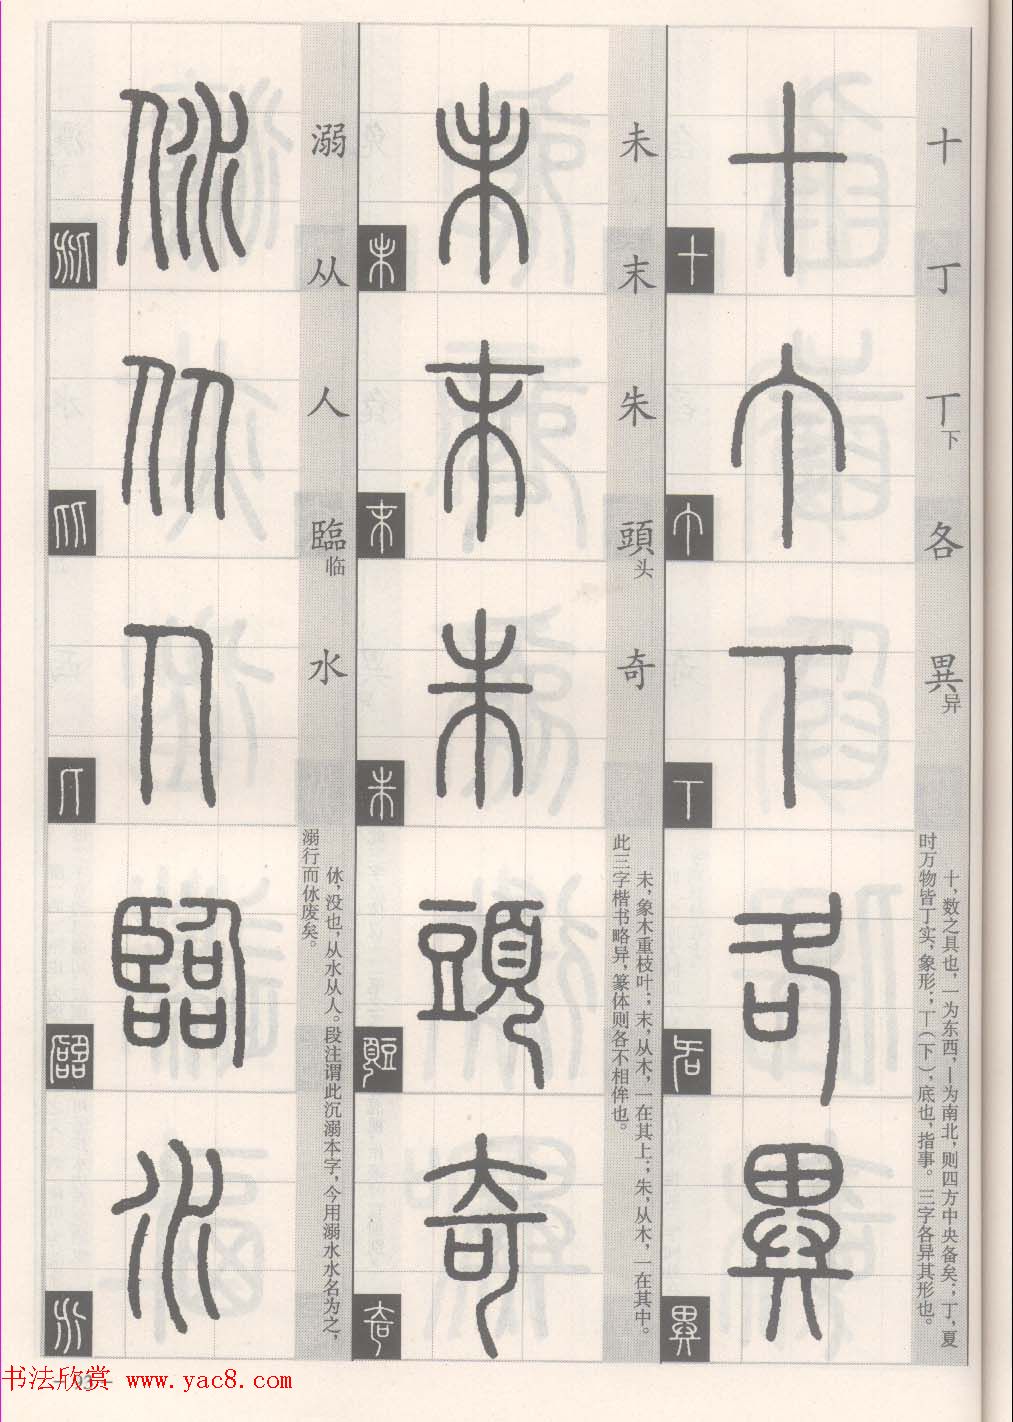 十
丁
丅下
各
異异
十，数之具也，一为东西，丨为南北，则四方中央备矣；丁，夏
时万物皆丁实，象形；丅（下），底也，指事。三字各异其形也。
未
末
朱
頭头
奇
未，象木重枝叶；末，从木，一在其上；朱，从木，一在其中。
此三字楷书略异，篆体则各不相侔也。
溺
从
人
臨临
水
㲻，没也，从水从人。段注谓此沉溺本字，今用溺水水名为之，
溺行而㲻废矣。
书法欣赏 www.yac8.com